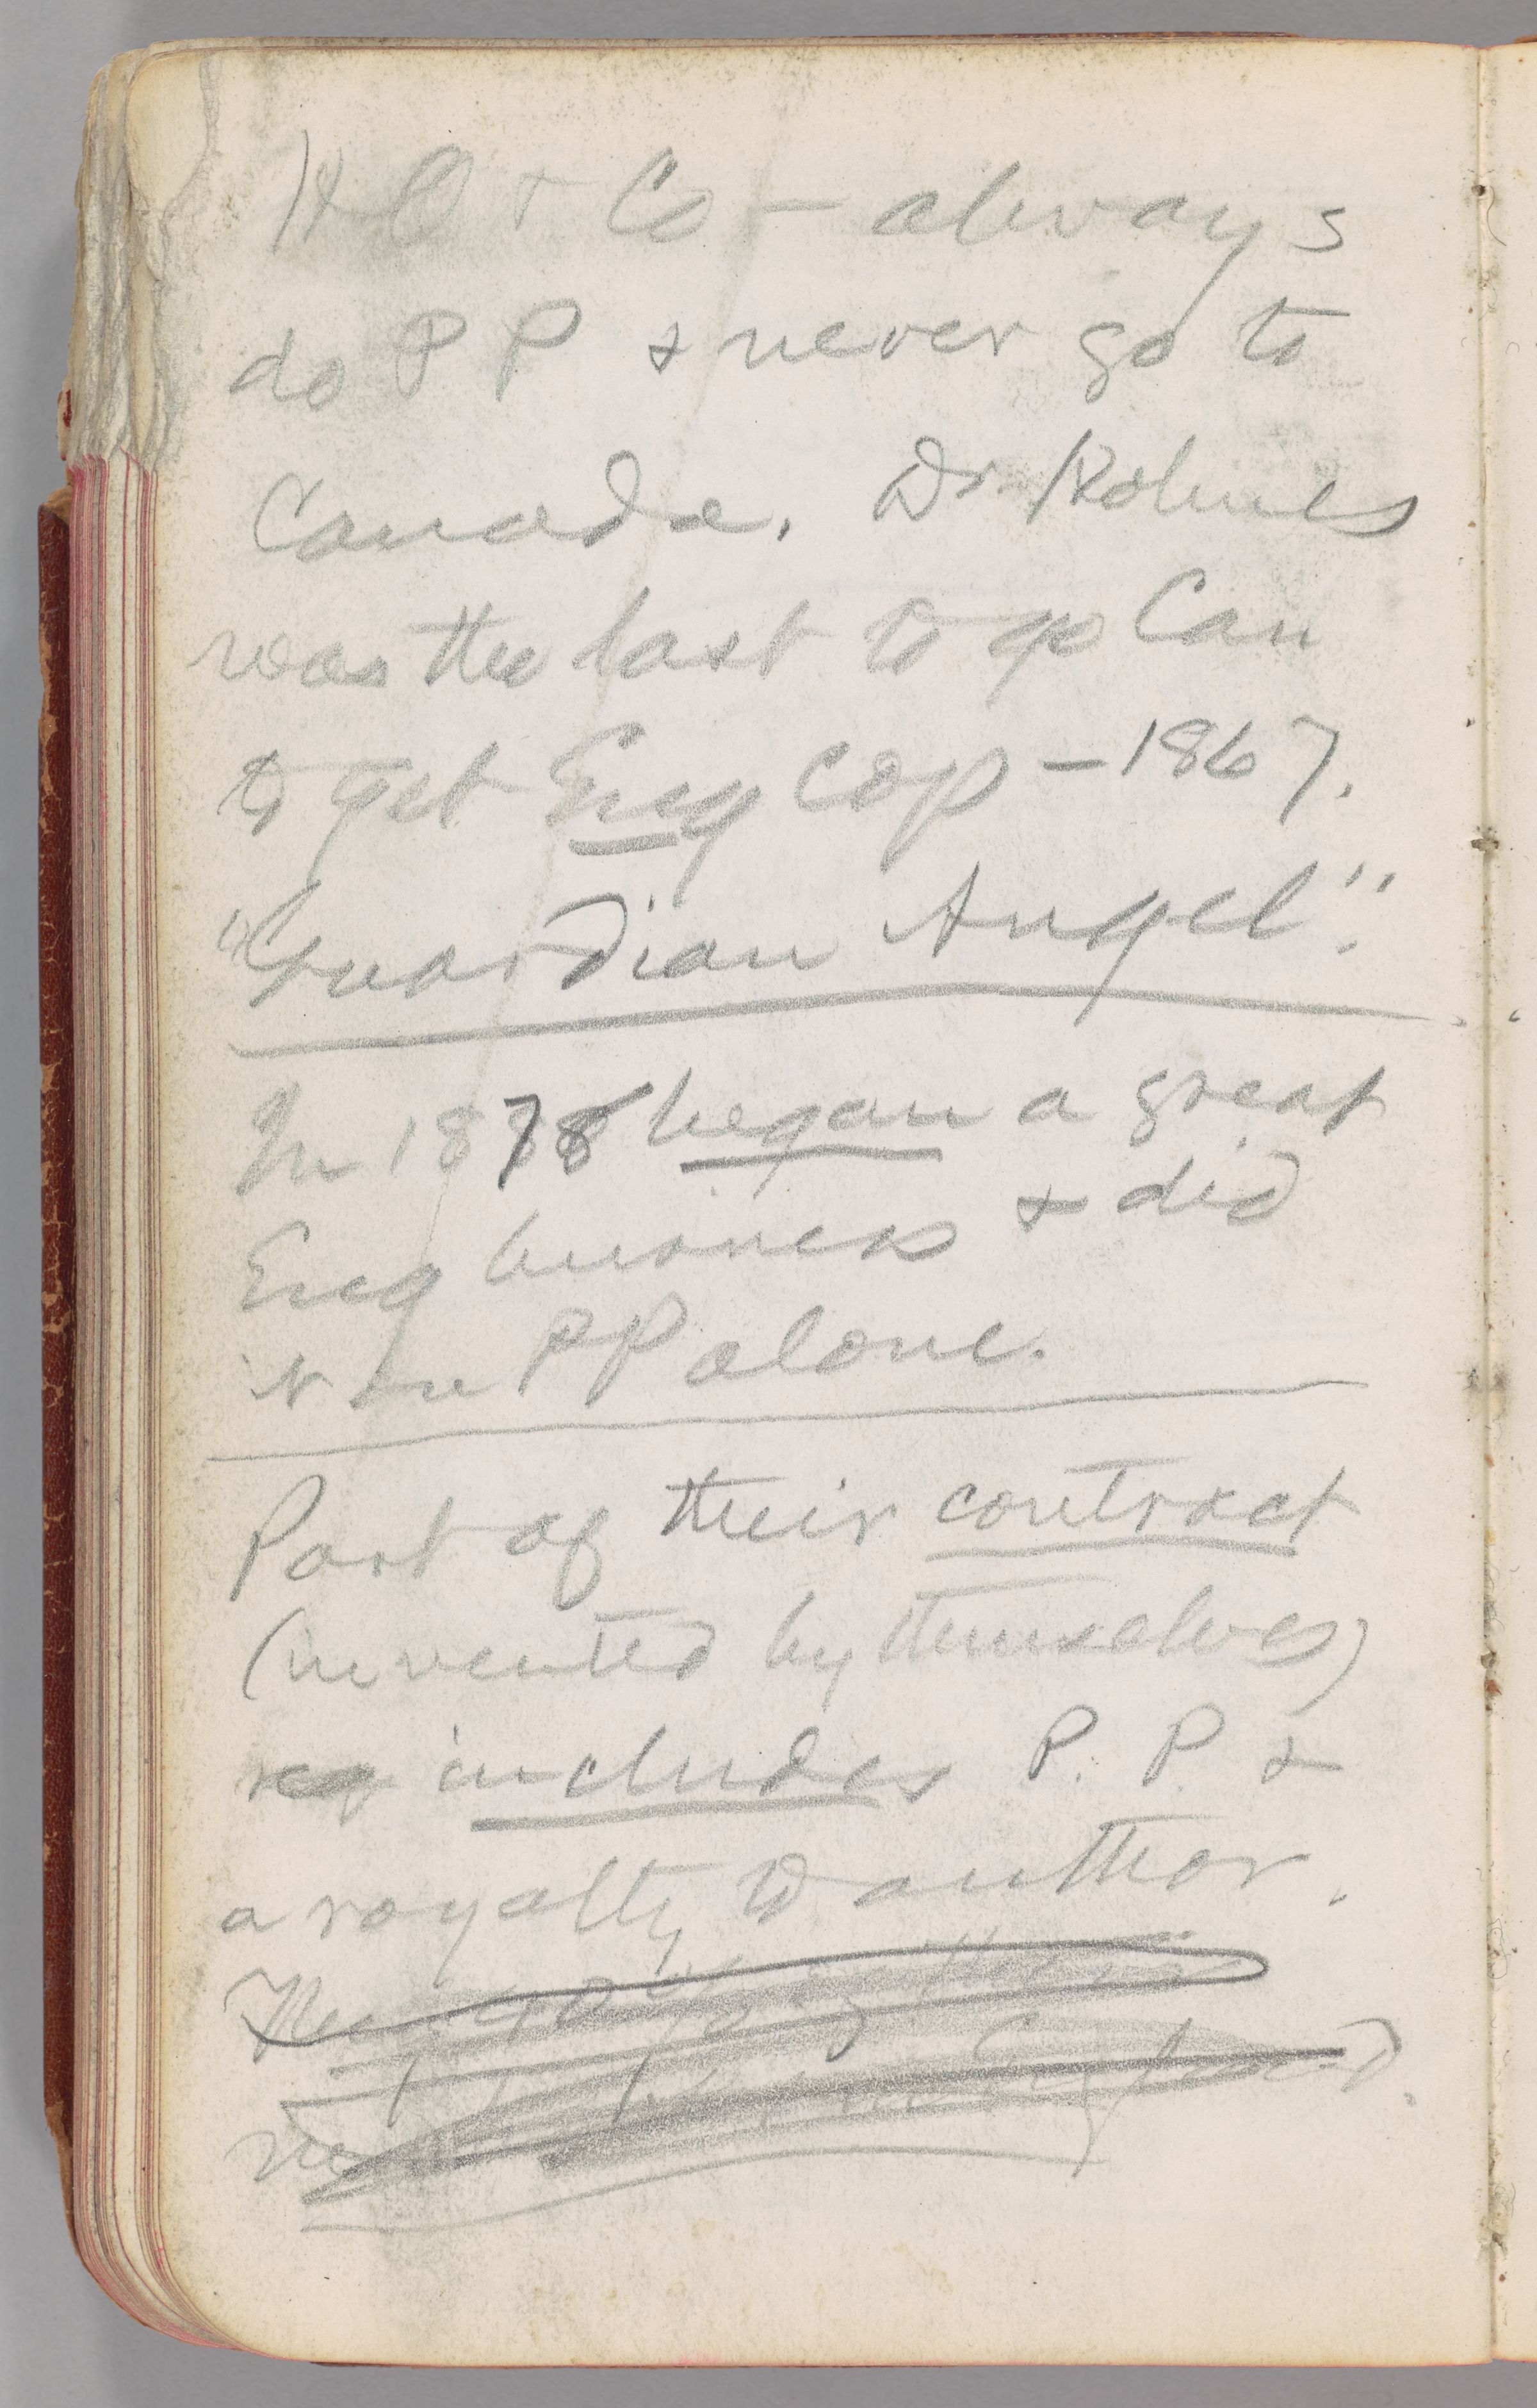 H O & Co — always
do P P & never go to
Canada. Dr Holmes
was the last to go Can
to get Eng cop — 1867.
"Guardian Angel".
In 1878 began a great
Eng business & did
it in P P alone.
Part of their contract
(invented by themselves)
includes P. P. &
a royalty to author.
They
England.